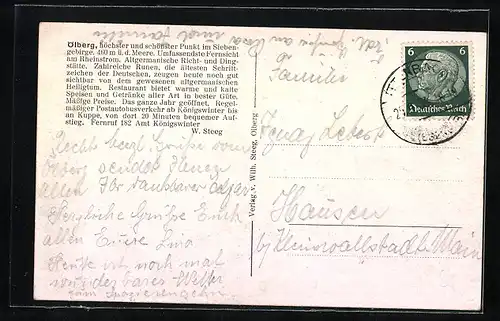 Ölberg, höchster und schönster Punkt im Sieben-
gebirge. 480 m ü. d. Meere. Umfassendste Fernsicht
am Rheinstrom. Altgermanische Richt- und Ding-
stätte. Zahlreiche Runen, die ältesten Schrift-
zeichen der Deutschen, zeugen heute noch gut
sichtbar von dem gewesenen altgermanischen
Heiligtum. Restaurant bietet warme und kalte
Speisen und Getränke aller Art in bester Güte.
Mäßige Preise. Das ganze Jahr geöffnet. Regel-
mäßiger Postautobusverkehr ab Königswinter bis
an Kuppe, von dort 20 Minuten bequemer Auf-
stieg. Fernruf 182 Amt Königswinter
W. Steeg
Recht herzl. Grüße vom
sendet Ihnen
allen Ihr dankbarer
Herzliche Grüße Euch
allen Eure
Heute ist noch mal
wunderbares Wetter
zum Spazierengehen.
Verlag v. Wilh. Steeg, Ölberg
6 6
Deutsches Reich
Familie
Ignaz
Hausen
b/ Kleinwallstadt Main